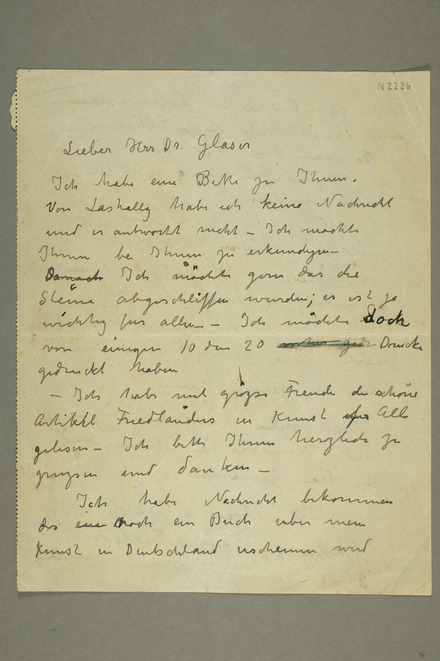 N2226
Lieber Herr Dr. Glaser
Ich habe eine Bitte zu Ihnen.
Von Lassally habe ich keine Nachricht
und er antwortet nicht – Ich möchte
Ihnen bei Ihnen zu erkundigen –
Danach Ich möchte gern das die
Steine abgeschliffen wurden; es ist ja
wichtig für allem – Ich möchte doch
von einigen 10 den 20 Drucke
gedruckt haben
– Ich habe mit grosse Freude de schöne
Artikel Friedländers in Kunst für Alle
gelesen – Ich bitte Ihnen herzlich zu
grussen und danken –
Ich habe Nachricht bekommen
das eine noch ein Buch uber mein
Kunst in Deutschland erscheinen wird